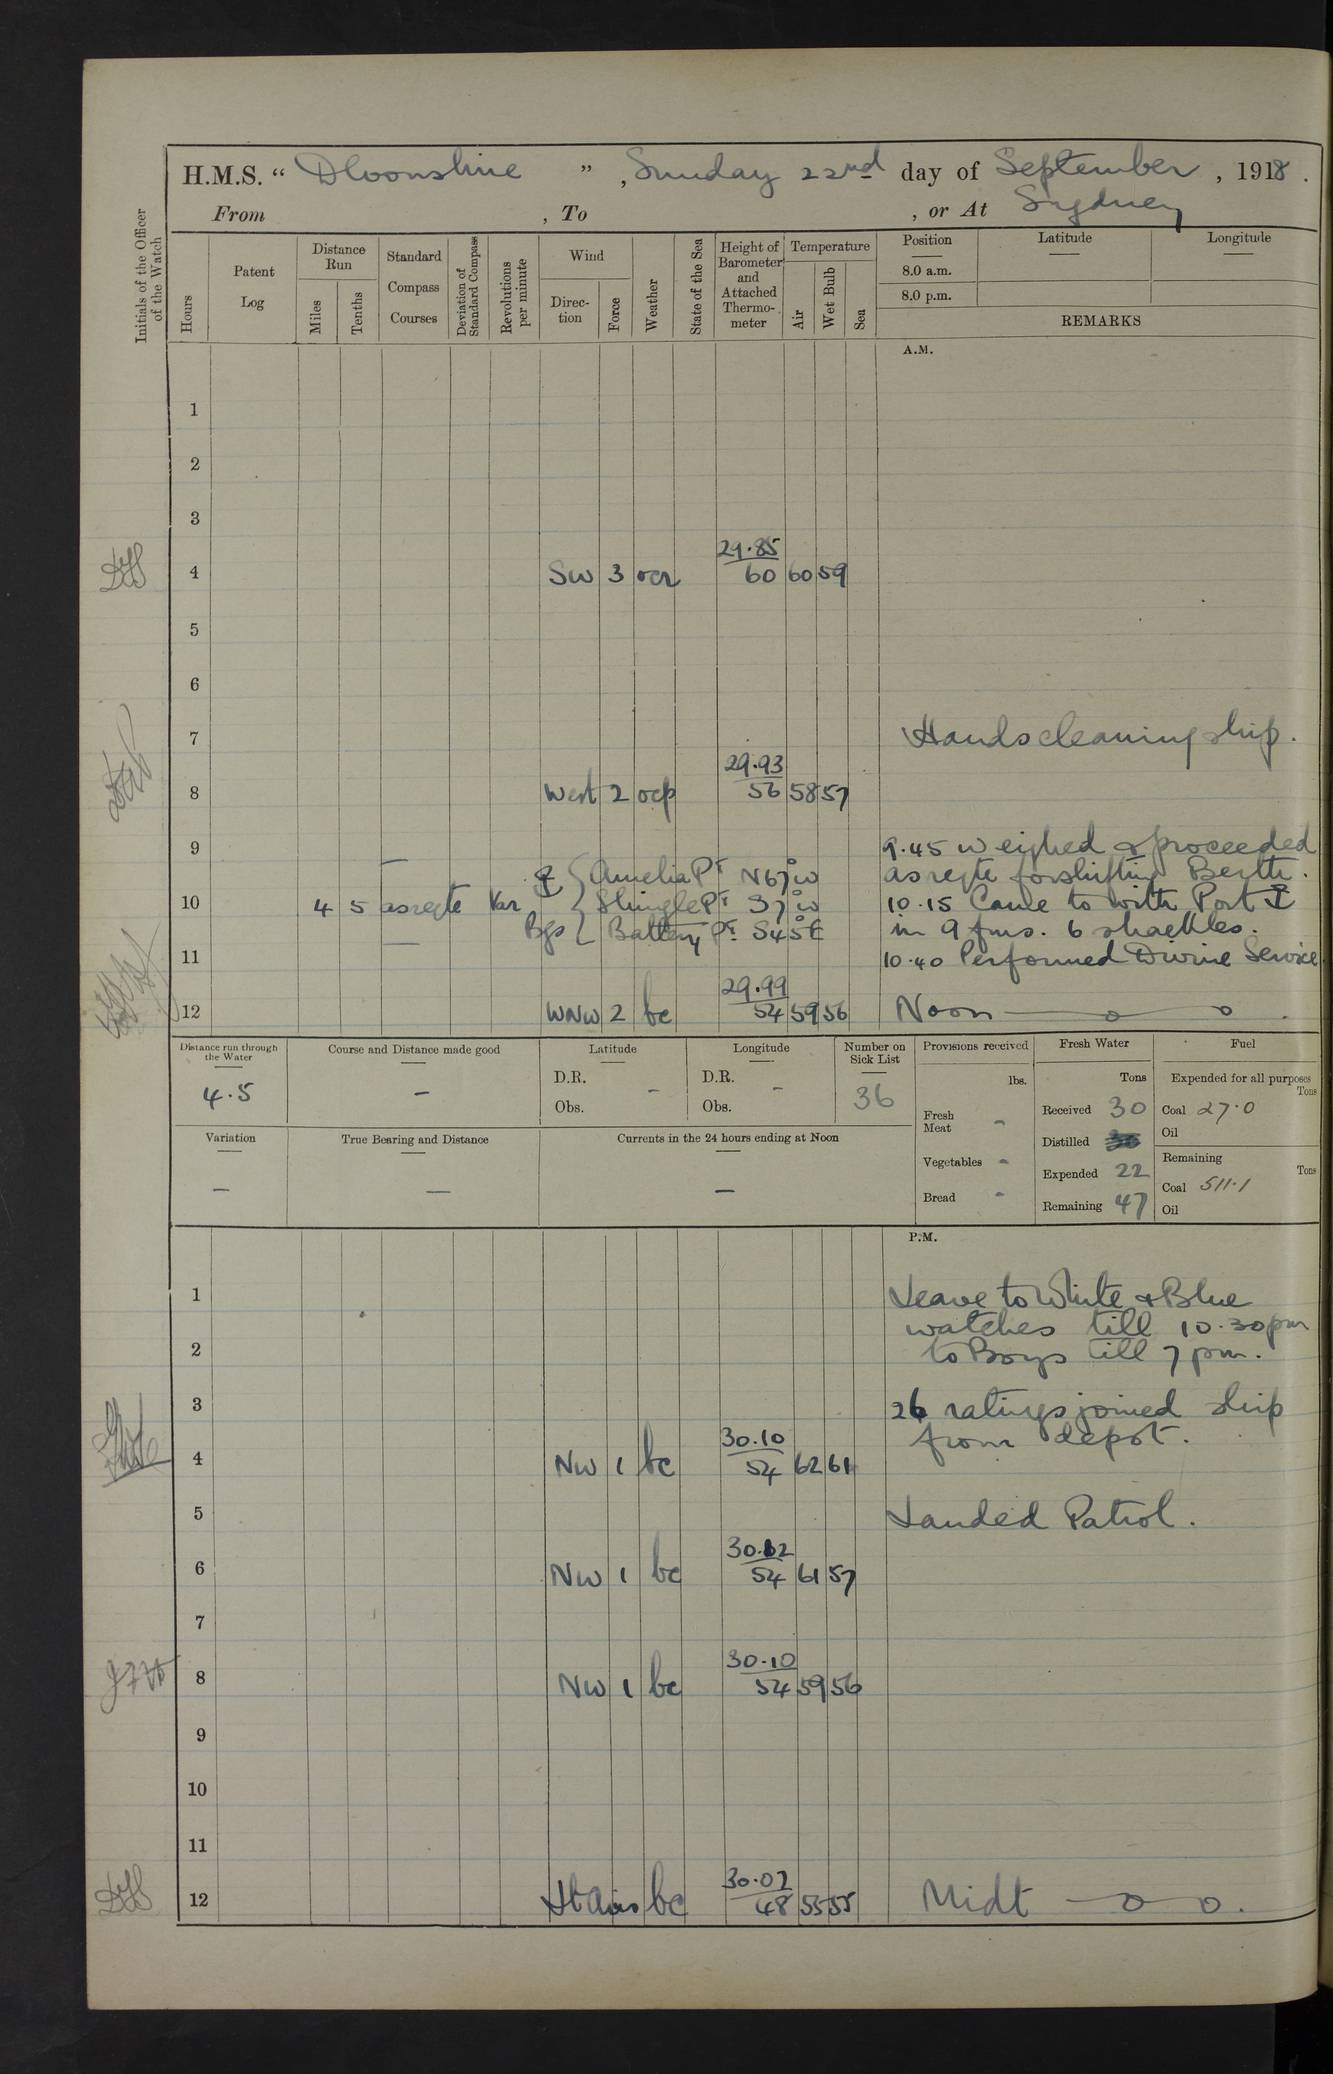 H.M.S. " Devonshire " , Sunday 22nd day of September , 1918 .
From , To , or At Sydney
Initials of the Officer of the Watch
Hours
Patent Log
Distance Run
Miles
Tenths
Standard Compass Courses
Deviation of Standard Compass
Revolutions per minute
Wind
Direc-tion
Force
Weather
State of the Sea
Height of Barometer and Attached Thermo-meter
Temperature
Air
Wet Bulb
Sea
Position
8.0 a.m.
8.0 p.m.
Latitude
Longitude
REMARKS
A.M.
1
2
3
29.85
4 SW 3 ocr 60 60 59
5
6
7 Hands cleaning ship.
29.93
8 West 2 ocp 56 58 57
9 9.45 weighed & proceeded
Amelia Pt N67°W as reqte for shifting Berth.
10 4 5 as reqte Var Shingle Pt S7°W 10.15 Came to with Port ⚓
Bgs Battery Pt. S45°E in 9 fms. 6 shackles.
11 10.40 Performed Divine Service
29.99
12 WNW 2 bc 54 59 56 Noon
Distance run through the Water
4.5
Course and Distance made good
-
Latitude
D.R. -
Obs.
Longitude
D.R. -
Obs.
Number on Sick List
36
Provisions received
lbs.
Fresh Meat -
Vegetables -
Bread -
Fresh Water
Tons
Received 30
Distilled
Expended 22
Remaining 47
Fuel
Expended for all purposes
Tons
Coal 27.0
Oil
Remaining
Tons
Coal 511.1
Oil
Variation
-
True Bearing and Distance
-
Currents in the 24 hours ending at Noon
-
P.M.
1 Leave to White & Blue
watches till 10.30pm
2 to Boys till 7pm.
3 26 ratings joined ship
30.10 from depot.
4 NW 1 bc 54 62 61
5 Landed Patrol.
30.12
6 NW 1 bc 54 61 57
7
30.10
8 NW 1 bc 54 59 56
9
10
11
30.07
12 Lt Airs bc 48 55 55 Midt